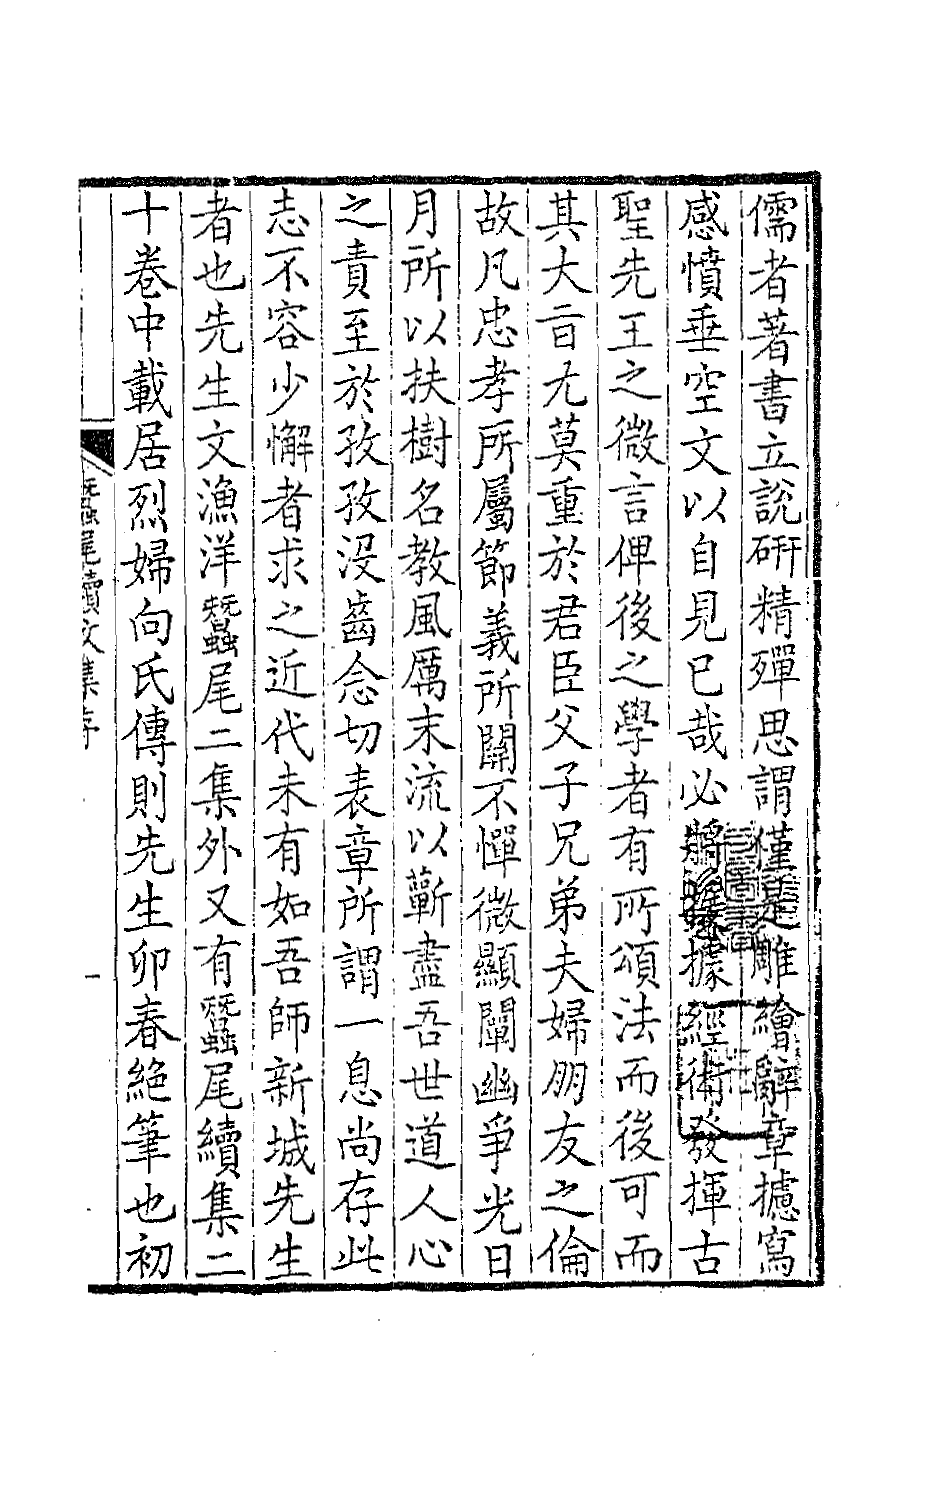 儒者著書立說硏精殫思謂僅是雕繪辭章攄寫
感憤垂空文以自見已哉必將根據經術發揮古
聖先王之微言俾後之學者有所頌法而後可而
其大旨尤莫重於君臣父子兄弟夫婦朋友之倫
故凡忠孝所屬節義所關不憚微顯闡幽爭光日
月所以扶樹名教風厲末流以蘄盡吾世道人心
之責至於孜孜没齒念切表章所謂一息尚存此
志不容少懈者求之近代未有如吾師新城先生
者也先生文漁洋蠶尾二集外又有蠶尾續集二
十卷中載居烈婦向氏傳則先生卯春絶筆也初
蠶尾續文集序
一